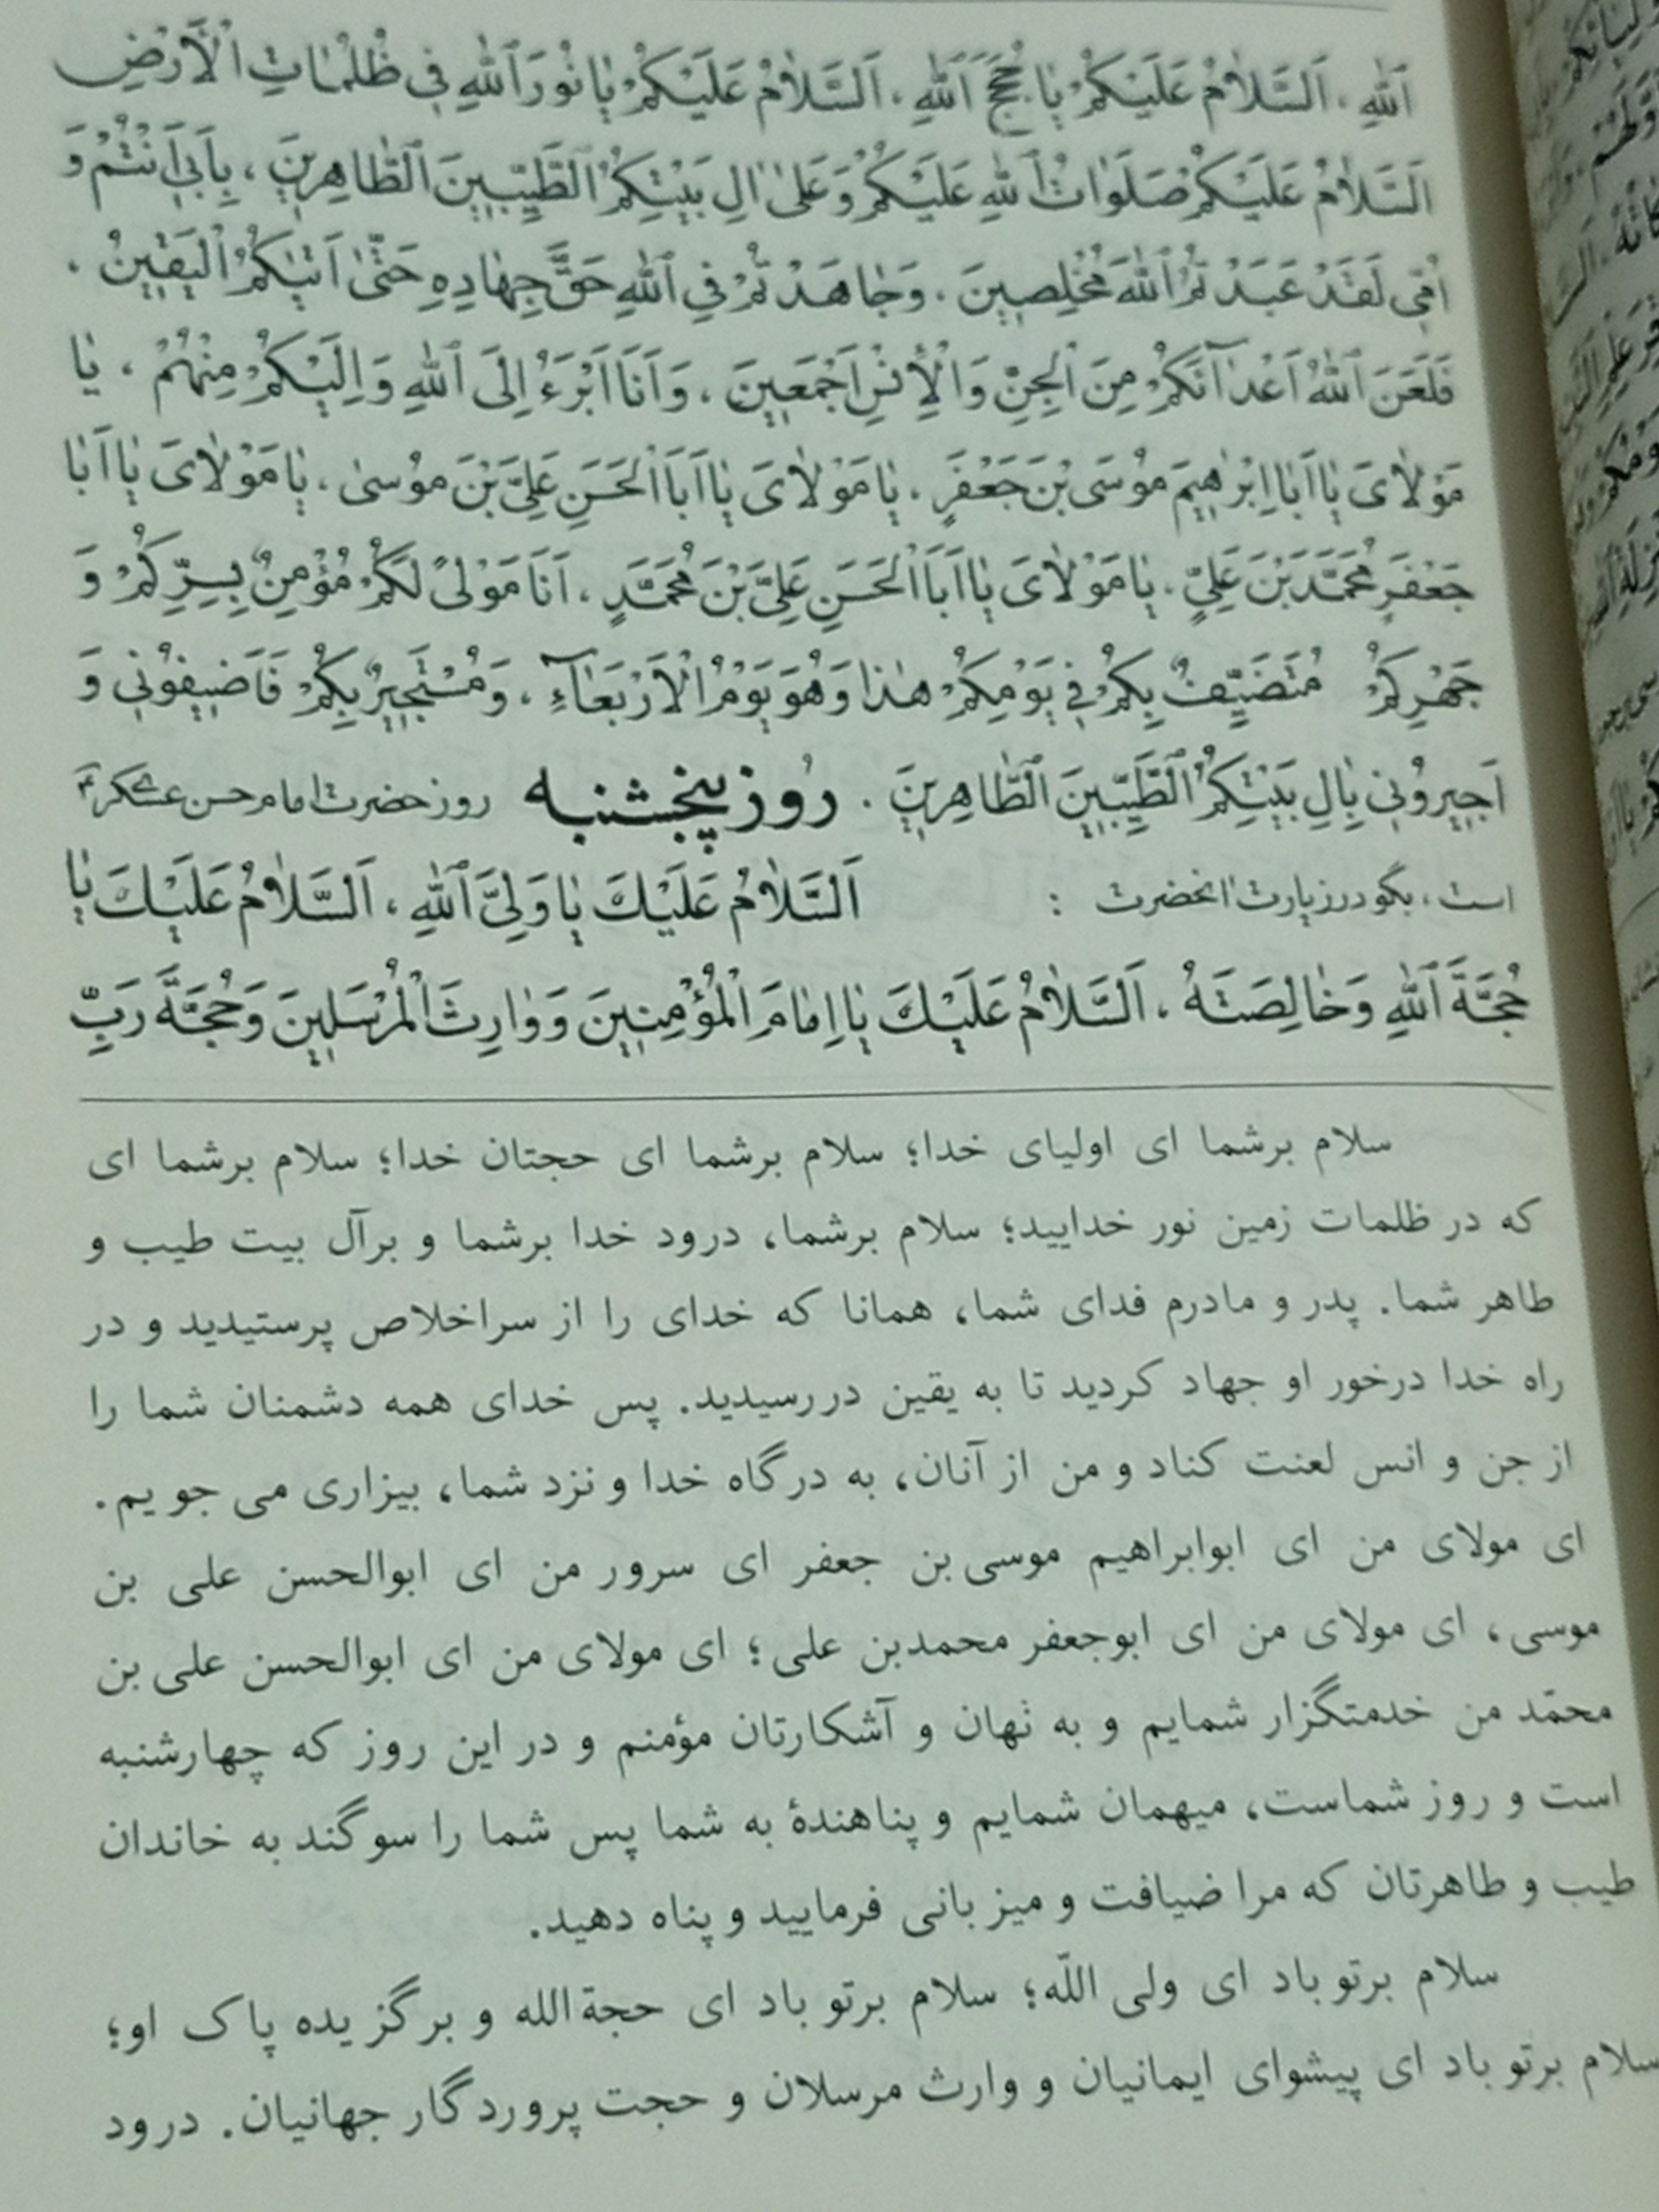 اَللّٰهِ ، اَلسَّلٰامُ عَلَيْكُمْ يٰا حُجَجَ اَللّٰهِ ، اَلسَّلٰامُ عَلَيْكُمْ يٰا نُورَ اَللّٰهِ فِي ظُلُمٰاتِ اْلأَرْضِ
اَلسَّلٰامُ عَلَيْكُمْ صَلَوٰاتُ اَللّٰهِ عَلَيْكُمْ وَعَلىٰ اٰلِ بَيْتِكُمُ الطَّيِّبِينَ الطّٰاهِرِينَ ، بِاَبِي اَنْتُمْ وَ
اُمّي لَقَدْ عَبَدْتُمُ اَللّٰهَ مُخْلِصِينَ ، وَجٰاهَدْتُمْ فِي اَللّٰهِ حَقَّ جِهٰادِهِ حَتّىٰ اَتٰيكُمُ الْيَقِينُ .
فَلَعَنَ اَللّٰهُ اَعْدٰآئَكُمْ مِنَ الْجِنِّ وَالْاِنْسِ اَجْمَعِينَ ، وَاَنَا اَبْرَءُ اِلَى اَللّٰهِ وَاِلَيْكُمْ مِنْهُمْ ، يٰا
مَوْلٰايَ يٰا اَبٰا اِبْرٰهِيمَ مُوسَى بْنَ جَعْفَرٍ ، يٰا مَوْلٰايَ يٰا اَبَا الْحَسَنِ عَلِيَّ بْنَ مُوسىٰ ، يٰا مَوْلٰايَ يٰا اَبٰا
جَعْفَرٍ مُحَمَّدَ بْنَ عَلِيٍّ ، يٰا مَوْلٰايَ يٰا اَبَا الْحَسَنِ عَلِيَّ بْنَ مُحَمَّدٍ ، اَنَا مَوْلىً لَكُمْ مُؤْمِنٌ بِسِرِّكُمْ وَ
جَهْرِكُمْ مُتَضَيِّفٌ بِكُمْ فِي يَوْمِكُمْ هٰذٰا وَهُوَ يَوْمُ الْاَرْبَعٰاءِ ، وَمُسْتَجِيرٌ بِكُمْ فَاَضِيفُونِي وَ
اَجِيرُونِي بِاٰلِ بَيْتِكُمُ الطَّيِّبِينَ الطّٰاهِرِينَ . روز پنجشنبه روز حضرت امام حسن عسکری ع
است ، بگو در زیارت آنحضرت : اَلسَّلٰامُ عَلَيْكَ يٰا وَلِيَّ اَللّٰهِ ، اَلسَّلٰامُ عَلَيْكَ يٰا
حُجَّةَ اَللّٰهِ وَخٰالِصَتَهُ ، اَلسَّلٰامُ عَلَيْكَ يٰا اِمٰامَ الْمُؤْمِنِينَ وَوٰارِثَ الْمُرْسَلِينَ وَحُجَّةَ رَبِّ
سلام برشما ای اولیای خدا؛ سلام برشما ای حجتان خدا؛ سلام برشما ای
که در ظلمات زمین نور خدایید؛ سلام برشما، درود خدا برشما و برآل بیت طیب و
طاهر شما. پدر و مادرم فدای شما، همانا که خدای را از سراخلاص پرستیدید و در
راه خدا درخور او جهاد کردید تا به یقین در رسیدید. پس خدای همه دشمنان شما را
از جن و انس لعنت کناد و من از آنان، به درگاه خدا و نزد شما، بیزاری می جویم.
ای مولای من ای ابوابراهیم موسی بن جعفر ای سرور من ای ابوالحسن علی بن
موسی، ای مولای من ای ابوجعفر محمدبن علی؛ ای مولای من ای ابوالحسن علی بن
محمّد من خدمتگزار شمایم و به نهان و آشکارتان مؤمنم و در این روز که چهارشنبه
است و روز شماست، میهمان شمایم و پناهندۀ به شما پس شما را سوگند به خاندان
طیب و طاهرتان که مرا ضیافت و میزبانی فرمایید و پناه دهید.
سلام برتو باد ای ولی اللّه؛ سلام برتو باد ای حجةالله و برگزیده پاک او؛
سلام برتو باد ای پیشوای ایمانیان و وارث مرسلان و حجت پروردگار جهانیان. درود